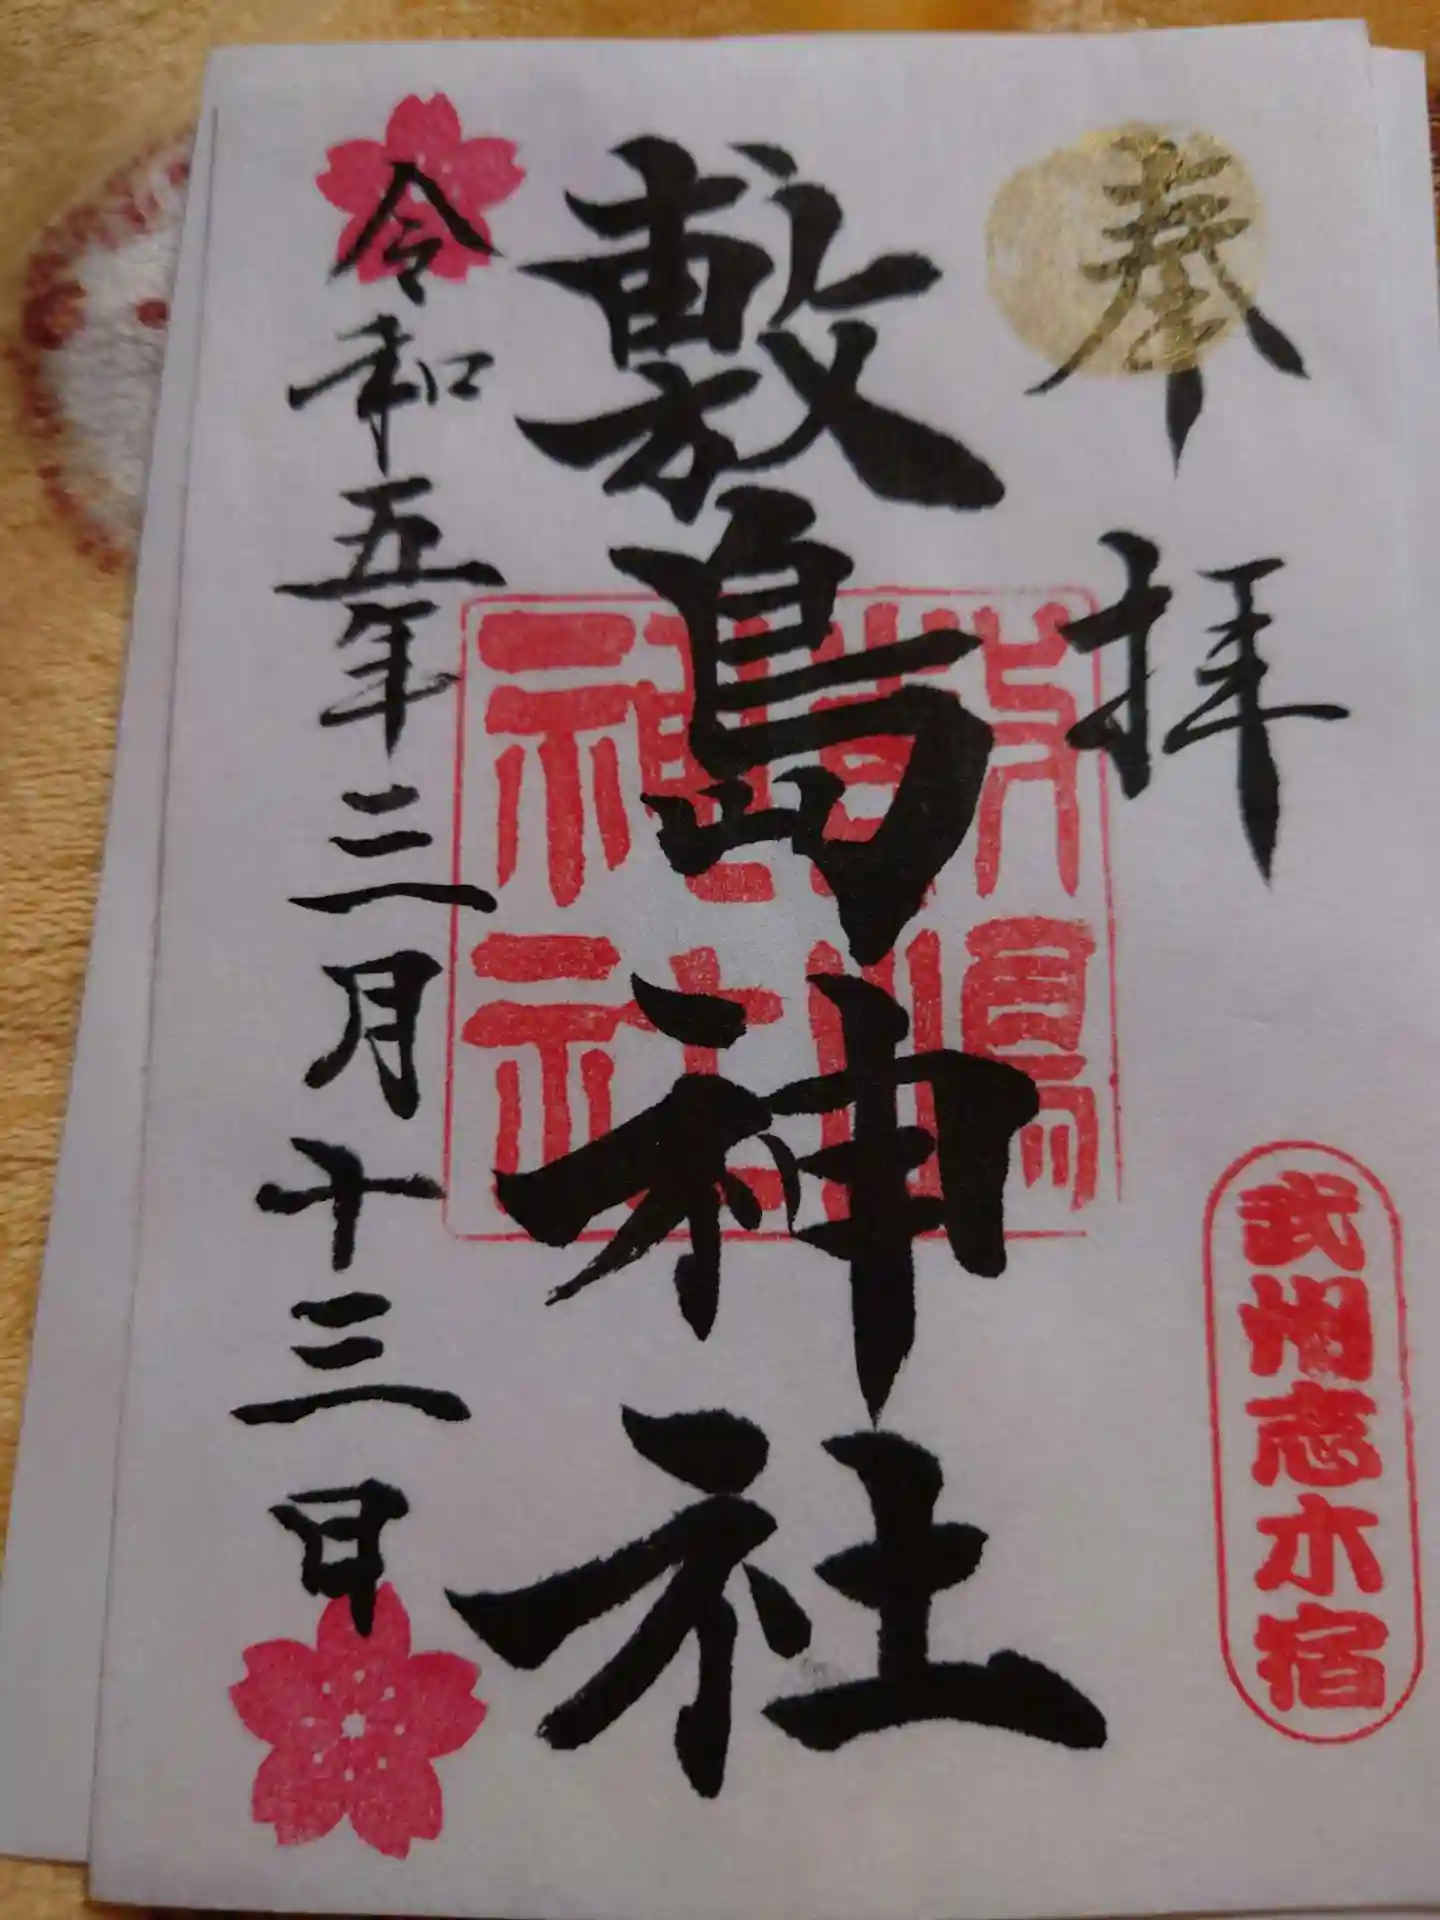 奉拝
武州志木宿
敷島神社
敷島神社
令和五年三月十三日